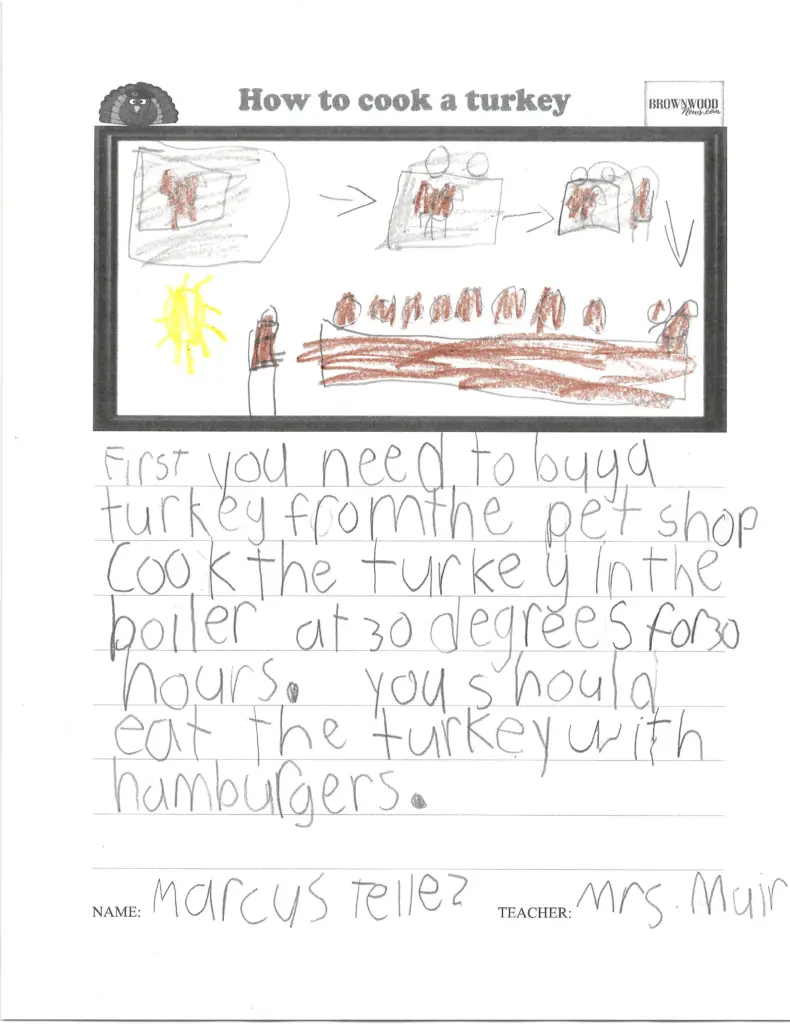 How to cook a turkey
BROWNWOOD
News.com
First you need to buy a
turkey from the pet shop
Cook the turkey in the
boiler at 30 degrees for 30
hours. you should
eat the turkey with
hamburgers.
NAME: Marcus Tellez
TEACHER: Mrs. Muir